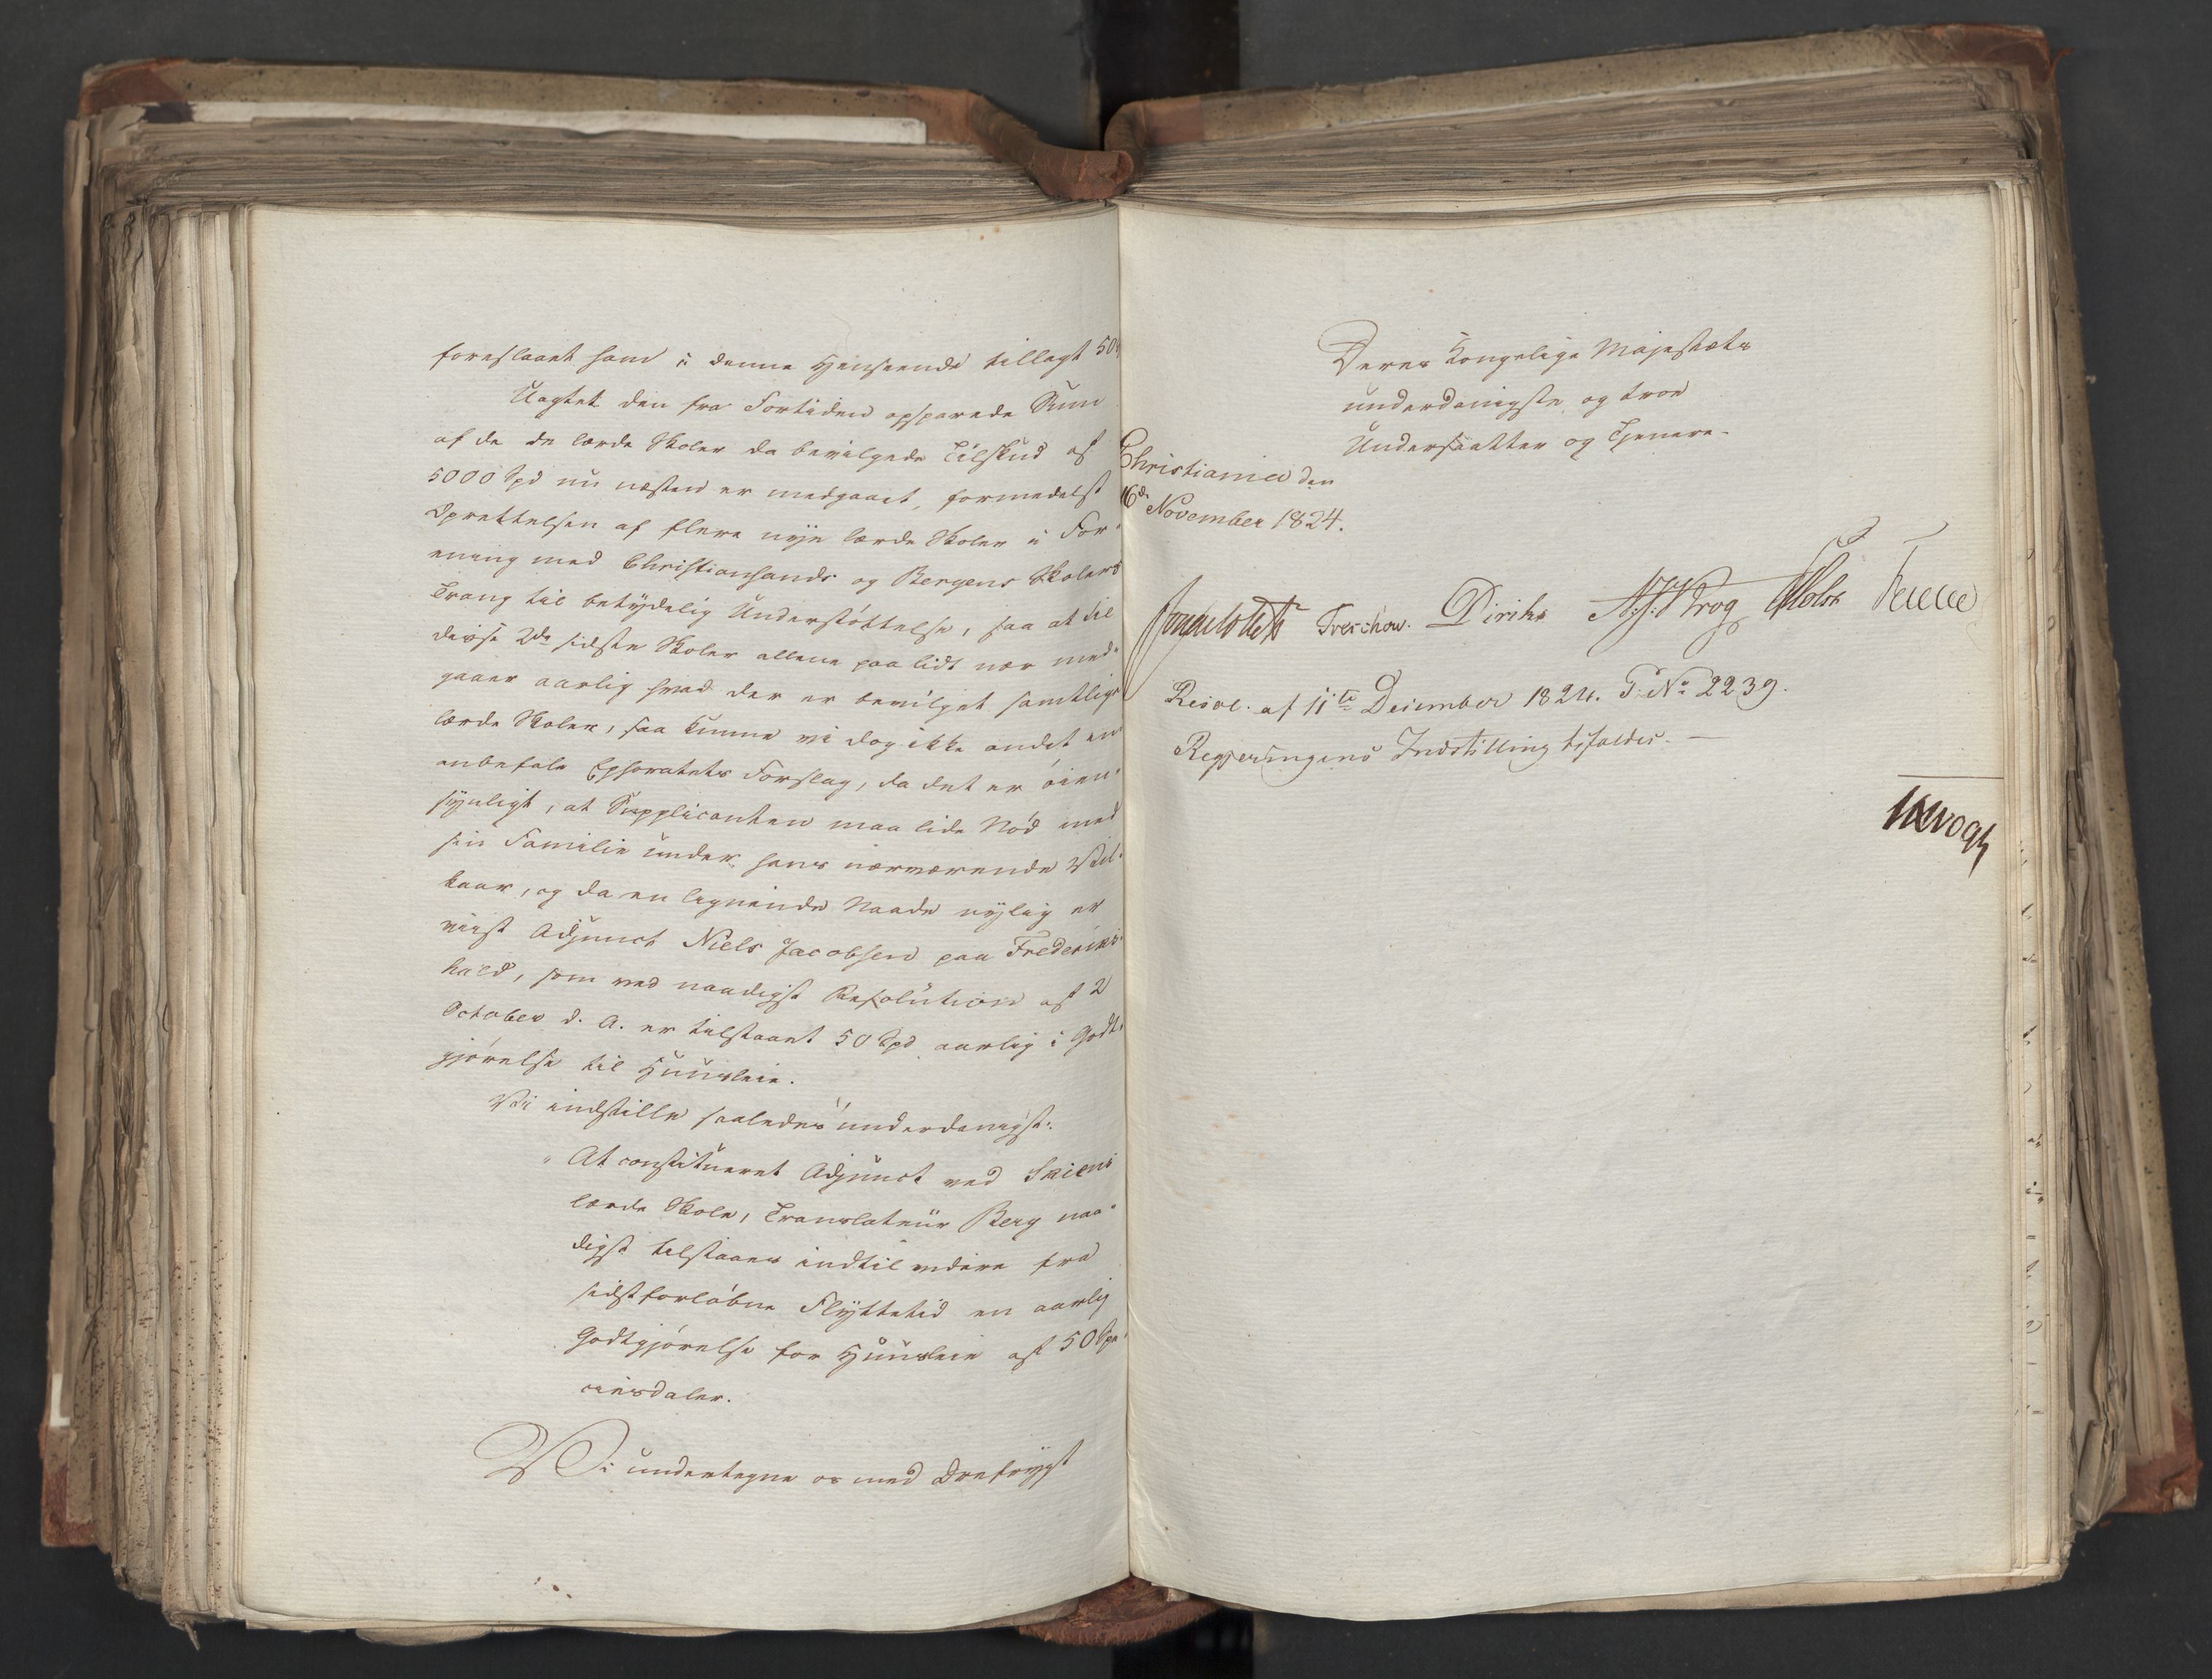 foreslaaet ham i denne Henseende tillagt 50
Uagtet den fra Fortiden opsparede Sum
af de de lærde Skoler da bevilgede Tilskud af
5000 Spd nu næsten er medgaaet, formedelst
Oprettelsen af flere nye lærde Skoler i For-
ening med Christiansands og Bergens Skolers
Trang til betydelig Understøttelse, saa at til
disse 2de sidste Skoler allene paa lidt nær med-
gaaer aarlig hvad der er bevilget samtlige
lærde Skoler, saa kunne vi dog ikke andet end
anbefale Ephoratets Forslag, da det er øien-
synligt, at Supplicanten maa lide Nød med
sin Familie under hans nærværende Vil-
kaar, og da en lignende Naade nylig er
viist Adjunct Niels Jacobsen paa Frederiks-
hald, som ved naadigst Resolution af 2
October d. A. er tilstaaet 50 Spd aarlig i Godt-
gjørelse til Huusleie.
Vi indstille saaledes underdanigst:
"At constitueret Adjunct ved Skiens
lærde Skole, Translateur Berg naa-
digst tilstaaes indtil videre fra
sidstforløbne Flyttetid en aarlig
Godtgjørelse for Huusleie af 50 Spe-
ciesdaler.
Vi undertegne os med Ærefrygt
Deres Kongelige Majestæts
underdanigste og troe
Undersaatter og Tjenere.
Christiania den
16de November 1824.
Treschow. Diriks Krog Holst
Resol. af 11te December 1824. P: No 2239.
Regjeringens Indstilling bifaldes. —